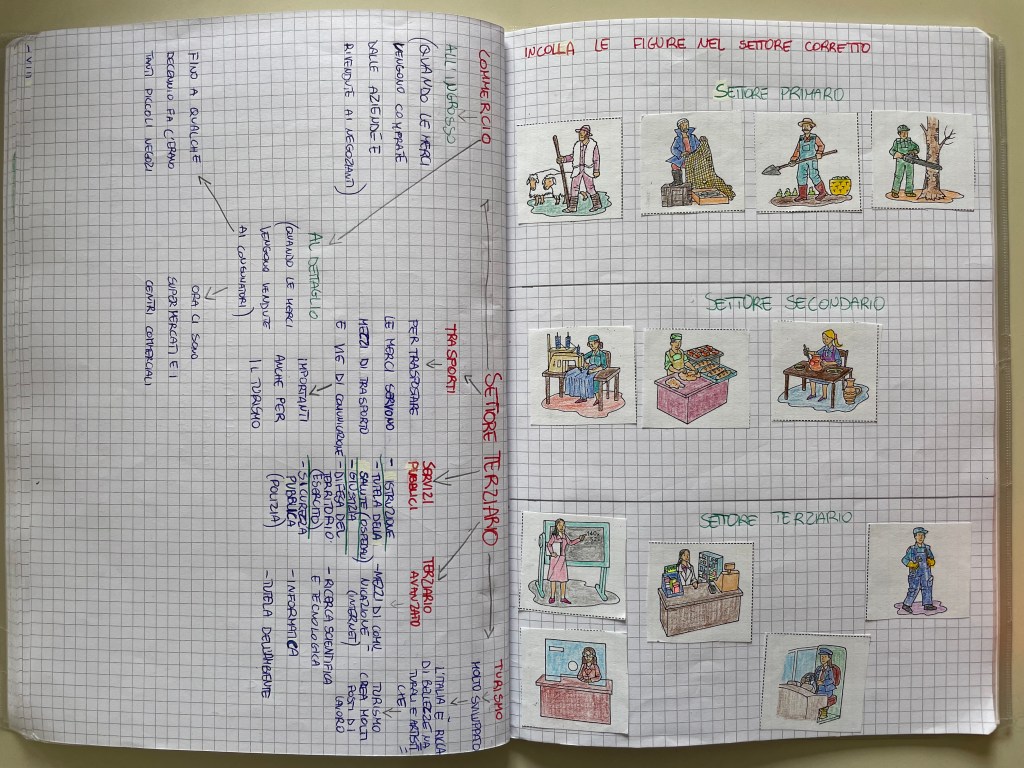 SETTORE TERZIARIO
COMMERCIO
ALL'INGROSSO
(QUANDO LE MERCI
VENGONO COMPRATE
DALLE AZIENDE E
RIVENDUTE AI NEGOZIANTI)
AL DETTAGLIO
(QUANDO LE MERCI
VENGONO VENDUTE
AI CONSUMATORI)
FINO A QUALCHE
DECENNIO FA C'ERANO
TANTI PICCOLI NEGOZI
ORA CI SONO
SUPERMERCATI E I
CENTRI COMMERCIALI
TRASPORTI
PER TRASPORTARE
LE MERCI SERVONO
MEZZI DI TRASPORTO
E VIE DI COMUNICAZIONE
IMPORTANTI
ANCHE PER
IL TURISMO
SERVIZI
PUBBLICI
- ISTRUZIONE
- TUTELA DELLA
SALUTE (OSPEDALI)
- GIUSTIZIA
- DIFESA DEL
TERRITORIO
(ESERCITO)
- SICUREZZA
PUBBLICA
(POLIZIA)
TERZIARIO
AVANZATO
- MEZZI DI COMU
NICAZIONE
(INTERNET)
- RICERCA SCIENTIFICA
E TECNOLOGICA
- INFORMATICA
- TUTELA DELL'AMBIENTE
TURISMO
MOLTO SVILUPPATO
L'ITALIA È RICCA
DI BELLEZZE NA
TURALI E ARTISTI
CHE
TURISMO
CREA MOLTI
POSTI DI
LAVORO
INCOLLA LE FIGURE NEL SETTORE CORRETTO
SETTORE PRIMARIO
SETTORE SECONDARIO
SETTORE TERZIARIO